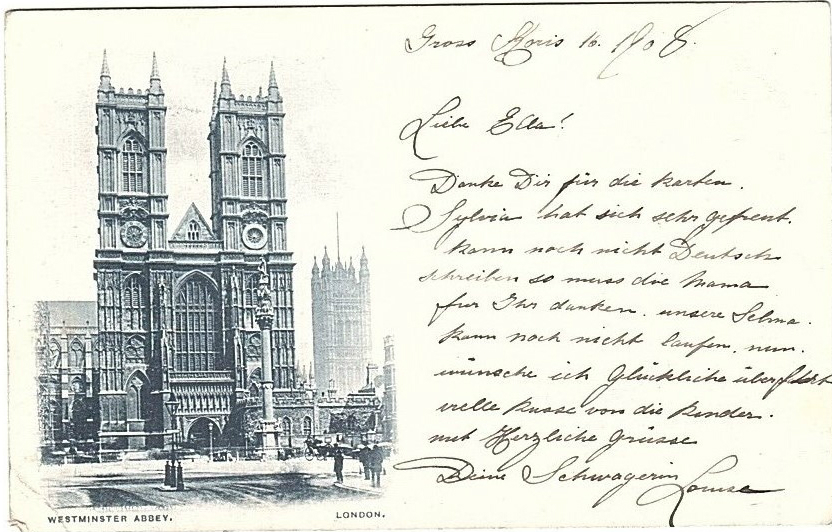 Gross 16. 1908.
Liebe Ella!
Danke Dir für die Karten.
Sylvia hat sich sehr gefreut.
kann noch nicht Deutsch
schreiben so muss die Mama
fur Ihr danken. unsere Selma.
kann noch nicht laufen. nun.
wünsche ich Glückliche überfahrt
vielle Kusse von die Kinder.
mit Herzliche Grüsse
Deine Schwagerin Louise
WESTMINSTER ABBEY. LONDON.